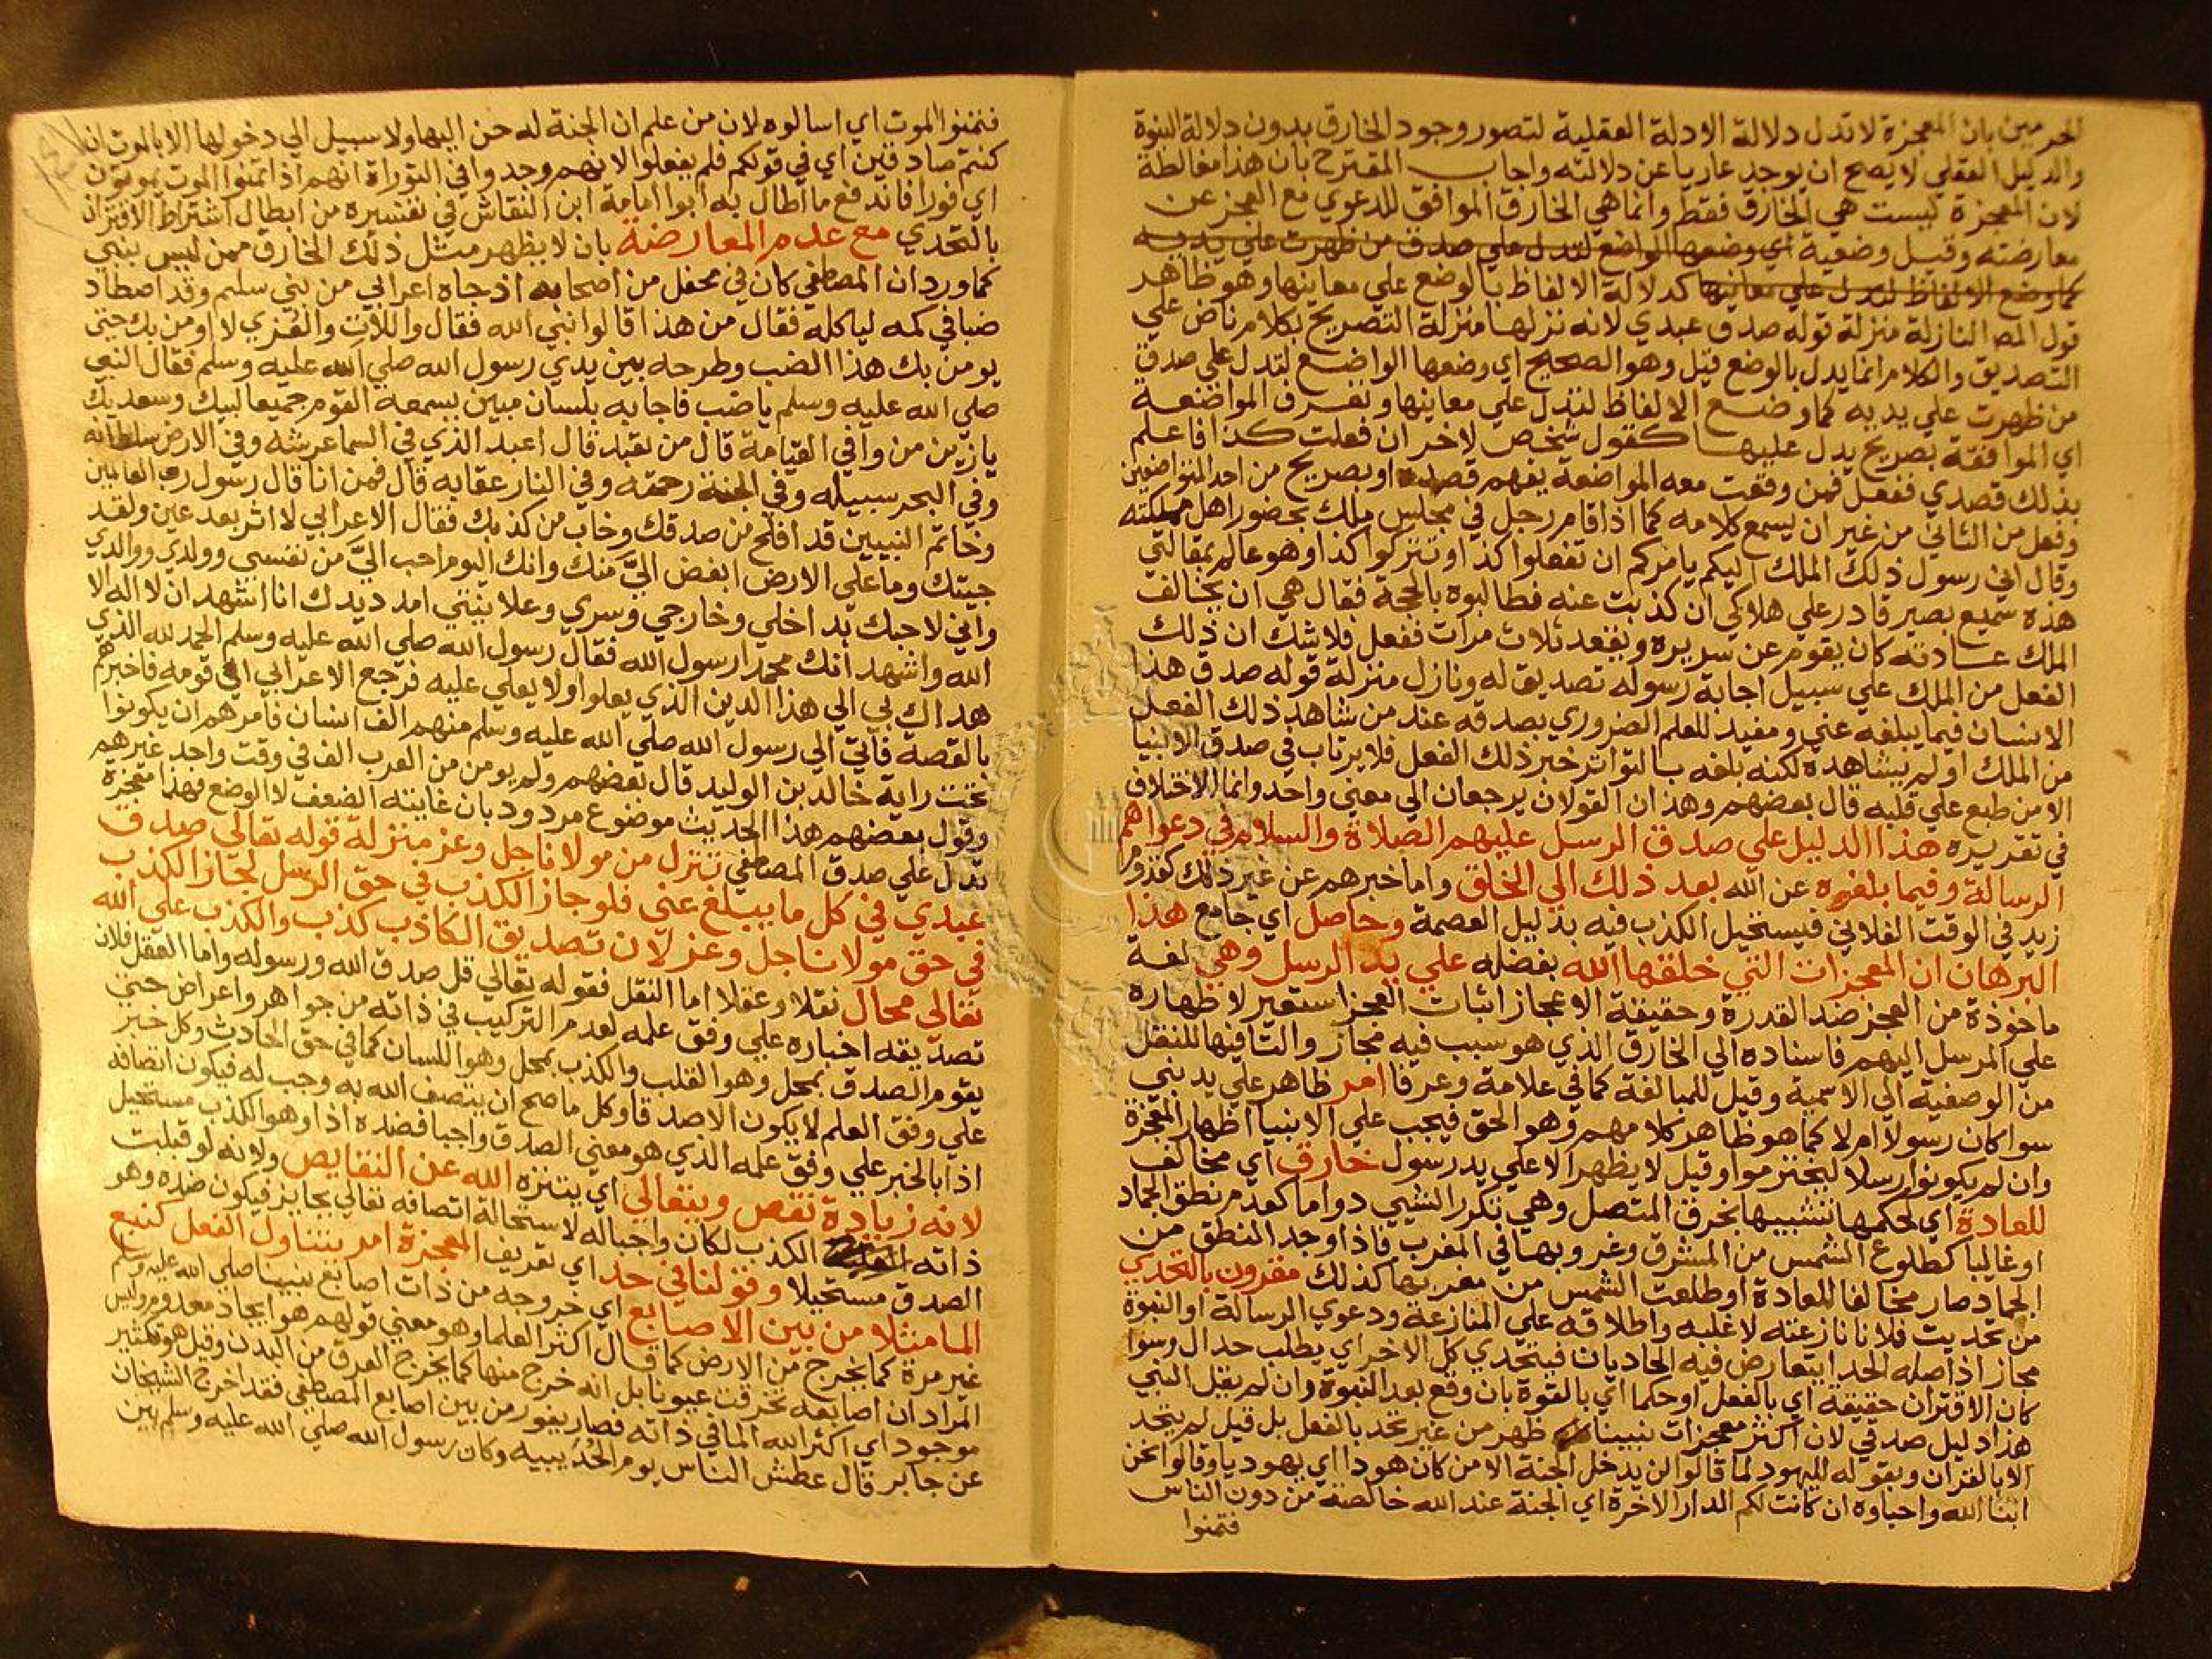 الحرمين بان المعجزة لا تدل دلالة الادلة العقلية لتصور وجود الخارق بدون دلالة النبوة
والدليل العقلي لا يصح ان يوجد عاريا عن دلالته واجاب المقترح بان هذا مغالطة
لان المعجزة ليست هي الخارق فقط وانما هي الخارق الموافق للدعوي مع العجز عن
معارضته وقيل وضعية اي وضعها الواضع لتدل علي صدق من ظهرت علي يديه
كما وضع الالفاظ لتدل علي معانيها كدلالة الالفاظ بالوضع علي معانيها وهو ظاهر
قول المص النازلة منزلة قوله صدق عبدي لانه نزلها منزلة التصريح بكلام ناص علي
التصديق والكلام انما يدل بالوضع قيل وهو الصحيح اي وضعها الواضع لتدل علي صدق
من ظهرت علي يديه كما وضع الالفاظ لتدل علي معانيها وتعرف المواضعة
اي الموافقة بصريح يدل عليها كقول شخص لاخر ان فعلت كذا فاعلم
بذلك قصدي ففعل فمن وقعت معه المواضعة يفهم قصده او بصريح من احد المتواضعين
وفعل من الثاني من غير ان يسمع كلامه كما اذا قام رجل في مجلس ملك بحضور اهل مملكته
وقال اني رسول ذلك الملك اليكم يامركم ان تفعلوا كذا او تتركوا كذا وهو عالم بمقالتي
هذه سميع بصير قادر علي هلاكي ان كذبت عنه فطالبوه بالحجة فقال هي ان يخالف
الملك عادته كان يقوم عن سريره ويقعد ثلاث مرات ففعل فلا شك ان ذلك
الفعل من الملك علي سبيل اجابة رسوله تصديق له ونازل منزلة قوله صدق هذا
الانسان فيما يبلغه عني ومفيد للعلم الضروري بصدقه عند من شاهد ذلك الفعل
من الملك او لم يشاهده لكنه بلغه بالتواتر خبر ذلك الفعل فلا يرتاب في صدق الانبيا
الا من طبع علي قلبه قال بعضهم وهذان القولان يرجعان الي معني واحد وانما الاختلاف
في تقريره هذا الدليل علي صدق الرسل عليهم الصلاة والسلام في دعواهم
الرسالة وفيما بلغوه عن الله بعد ذلك الي الخلق واما خبرهم عن غير ذلك كقدوم
زيد في الوقت الفلاني فيستحيل الكذب فيه بدليل العصمة وحاصل اي جامع هذا
البرهان ان المعجزات التي خلقها الله بفضله علي يد الرسل وهي لغة
ماخوذة من العجز ضد القدرة وحقيقة الاعجاز اثبات العجز استعير لاظهاره
علي المرسل اليهم فاسناده الي الخارق الذي هو سبب فيه مجاز والتا فيها للنقل
من الوصفية الي الاسمية وقيل للمبالغة كما في علامة وعرفا امر ظاهر علي يد نبي
سوا كان رسولا ام لا كما هو ظاهر كلامهم وهو الحق فيجب علي الانبيا اظهار المعجزة
وان لم يكونوا رسلا ليحترموا وقيل لا يظهر الا علي يد رسول خارق اي مخالف
للعادة اي لحكمها تشبيها بخرق المتصل وهي تكرر الشيي دواما كعدم نطق الجماد
او غالبا كطلوع الشمس من المشرق وغروبها في المغرب فاذا وجد النطق من
الجماد صار مخالفا للعادة او طلعت الشمس من مغربها كذلك مقرون بالتحدي
من تحديت فلانا نازعته لاغلبه واطلاقه علي المنازعة ودعوي الرسالة او النبوة
مجاز اذ اصله الحدا يتعارض فيه الحاديان فيتحدي كل الاخر اي يطلب حداه وسوا
كان الاقتران حقيقة اي بالفعل او حكما اي بالقوة بان وقع بعد النبوة وان لم يقل النبي
هذا دليل صدقي لان اكثر معجزات نبينا ظهر من غير تحد بالفعل بل قيل لم يتحد
الا بالقران وبقوله لليهود لما قالوا لن يدخل الجنة الا من كان هودا اي يهوديا وقالوا نحن
ابنا الله واحباوه ان كانت لكم الدار الاخرة اي الجنة عند الله خالصة من دون الناس
فتمنوا
فتمنوا الموت اي اسالوه لان من علم ان الجنة له حن اليها ولا سبيل الي دخولها الا بالموت ان
كنتم صادقين اي في قولكم فلم يفعلوا لانهم وجدوا في التوراة انهم اذا تمنوا الموت يموتون
اي فورا فاندفع ما اطال به ابوا امامة ابن النقاش في تفسيره من ابطال اشتراط الاقتران
بالتحدي مع عدم المعارضة بان لا يظهر مثل ذلك الخارق ممن ليس بنبي
كما ورد ان المصطفي كان في محفل من اصحابه اذ جاه اعرابي من بني سليم وقد اصطاد
ضبا في كمه لياكله فقال من هذا قالوا نبي الله فقال واللات والعزي لا اومن بك حتي
يومن بك هذا الضب وطرحه بين يدي رسول الله صلي الله عليه وسلم فقال النبي
صلي الله عليه وسلم يا ضب فاجابه بلسان مبين يسمعه القوم جميعا لبيك وسعديك
يا زين من وافي القيامة قال من تعبد قال اعبد الذي في السما عرشه وفي الارض سلطانه
وفي البحر سبيله وفي الجنة رحمته وفي النار عقابه قال فمن انا قال رسول رب العالمين
وخاتم النبيين قد افلح من صدقك وخاب من كذبك فقال الاعرابي لا اثر بعد عين ولقد
جيتك وما علي الارض ابغض اليّ منك وانك اليوم احب اليّ من نفسي وولدي ووالدي
واني لاحبك بداخلي وخارجي وسري وعلانيتي امدد يدك انا اشهد ان لا اله الا
الله واشهد انك محمدا رسول الله فقال رسول الله صلي الله عليه وسلم الحمد لله الذي
هداك بي الي هذا الدين الذي يعلوا ولا يعلي عليه فرجع الاعرابي الي قومه فاخبرهم
بالقصة فاتي الي رسول الله صلي الله عليه وسلم منهم الف انسان فامرهم ان يكونوا
تحت راية خالد بن الوليد قال بعضهم ولم يومن من العرب الف في وقت واحد غيرهم
وقول بعضهم هذا الحديث موضوع مردود بان غايته الضعف لا الوضع فهذا معجزة
تدل علي صدق المصطفي تنزل من مولانا جل وعز منزلة قوله تعالي صدق
عبدي في كل ما يبلغ عني فلو جاز الكذب في حق الرسل لجاز الكذب
في حق مولانا جل وعز لان تصديق الكاذب كذب والكذب علي الله
تعالي محال نقلا وعقلا اما النقل فقوله تعالي قل صدق الله ورسوله واما العقل فلان
تصديقه اخباره علي وفق علمه لعدم التركيب في ذاته من جواهر واعراض حتي
يقوم الصدق بمحل وهو القلب والكذب بمحل وهو اللسان كما في حق الحادث وكل خبر
علي وفق العلم لا يكون الا صدقا وكل ما صح ان يتصف الله به وجب له فيكون اتصافه
اذا بالخبر علي وفق علمه الذي هو معني الصدق واجبا فضده اذا وهو الكذب مستحيل
لانه زيادة نقص ويتعالي اي يتنزه الله عن النقايص ولانه لو قبلت
ذاته الكذب لكان واجبا له لاستحالة اتصافه تعالي بجايز فيكون ضده وهو
الصدق مستحيلا وقولنا في حد اي تعريف المعجزة امر يتناول الفعل كنبع
الما مثلا من بين الاصابع اي خروجه من ذات اصابع نبينا صلي الله عليه وسلم
غير مرة كما يخرج من الارض كما قال اكثر العلما وهو معني قولهم هو ايجاد معدوم وليس
المراد ان اصابعه تخرقت عيونا بل انه خرج منها كما يخرج العرق من البدن وقيل هو تكثير
موجود اي اكثر الله الما في ذاته فصار يفور من بين اصابع المصطفي فقد اخرج الشيخان
عن جابر قال عطش الناس يوم الحُدَيبيه وكان رسول الله صلي الله عليه وسلم بين